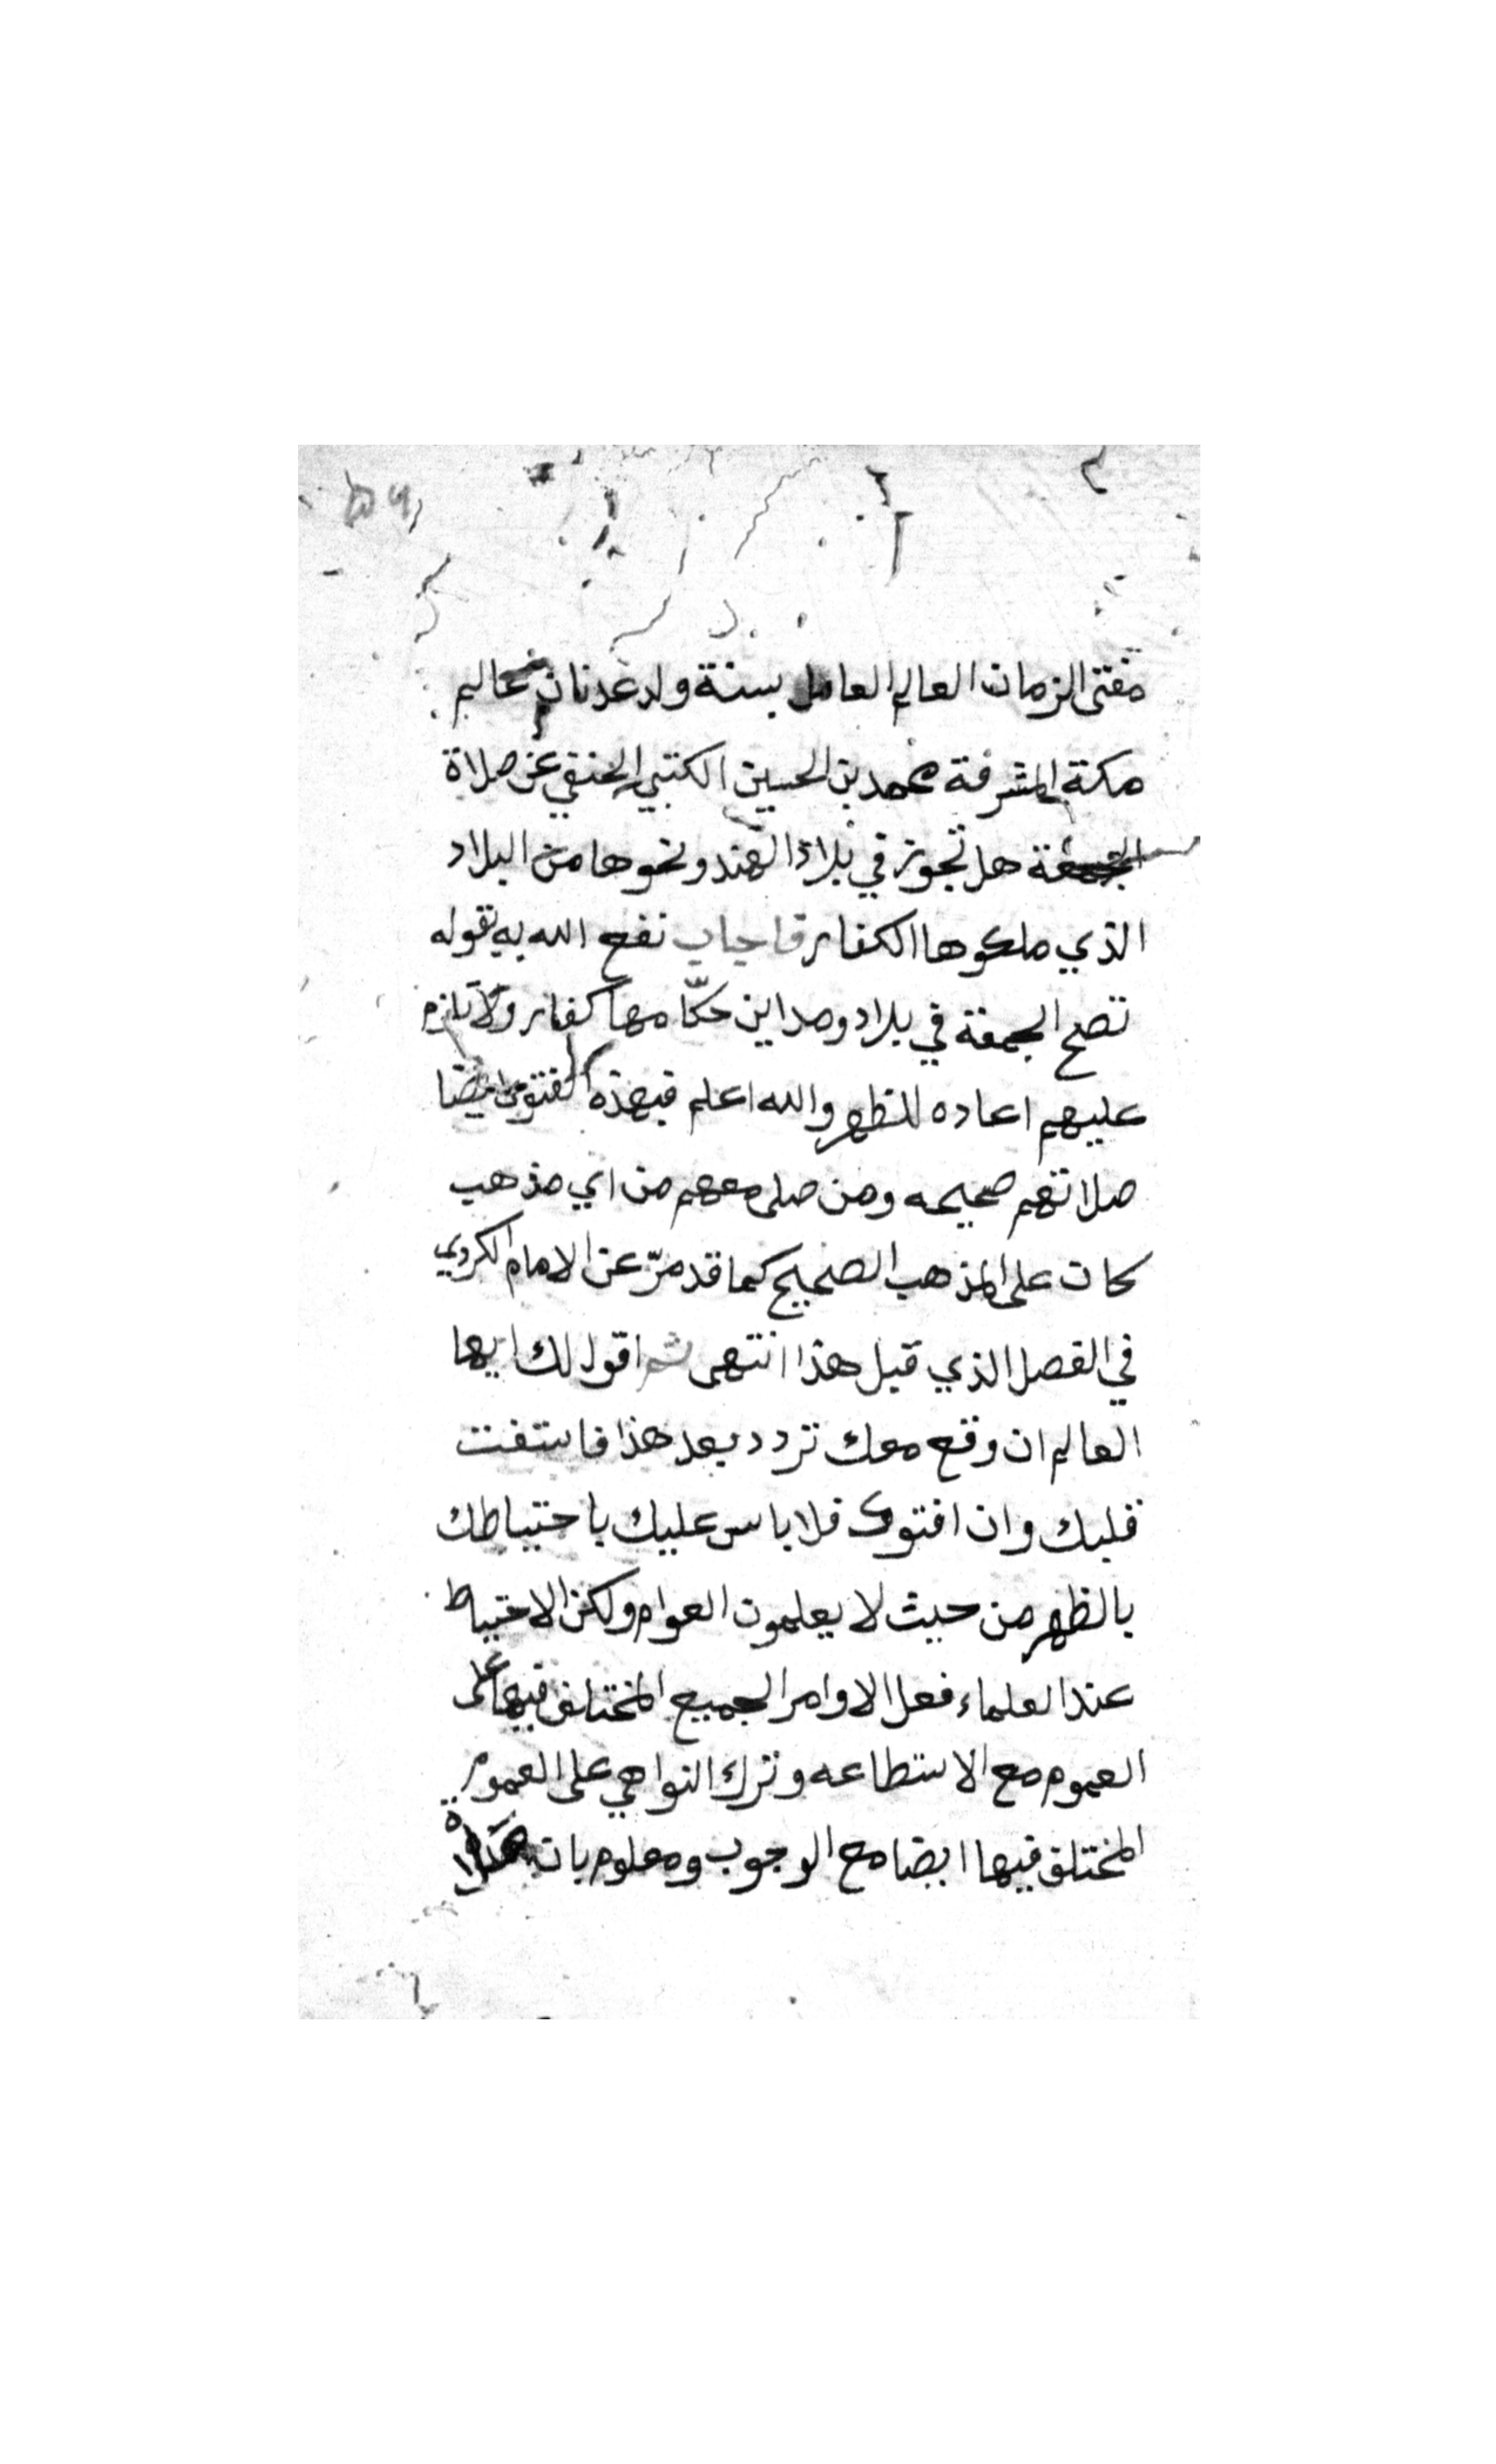 مفتي الزمان العالم العامل بسنة ولد عدنان عالم
مكة المشرفة محمد بن الحسين الكتبي الحنفي عن صلاة
الجمعة هل تجوز في بلاد الهند ونحوها من البلاد
الذي ملكوها الكفار فاجاب نفع الله به بقوله
تصح الجمعة في بلاد ومداين حكّامها كفار ولا تلزم
عليهم اعاده للظهر والله اعلم فبهذه الفتوى ايضا
صلاتهم صحيحه ومن صلى معهم من اي مذهب
كان على المذهب الصحيح كما قد مرّ عن الامام الكردي
في الفصل الذي قبل هذا انتهى ثم اقول لك ايها
العالم ان وقع معك تردد بعد هذا فاستفت
قلبك وان افتوك فلا باس عليك باحتياطك
بالظهر من حيث لا يعلمون العوام ولكن الاحتياط
عند العلماء فعل الاوامر الجميع المختلف فيها على
العموم مع الاستطاعه وترك النواهي على العموم
المختلف فيها ايضا مع الوجوب ومعلوم بان